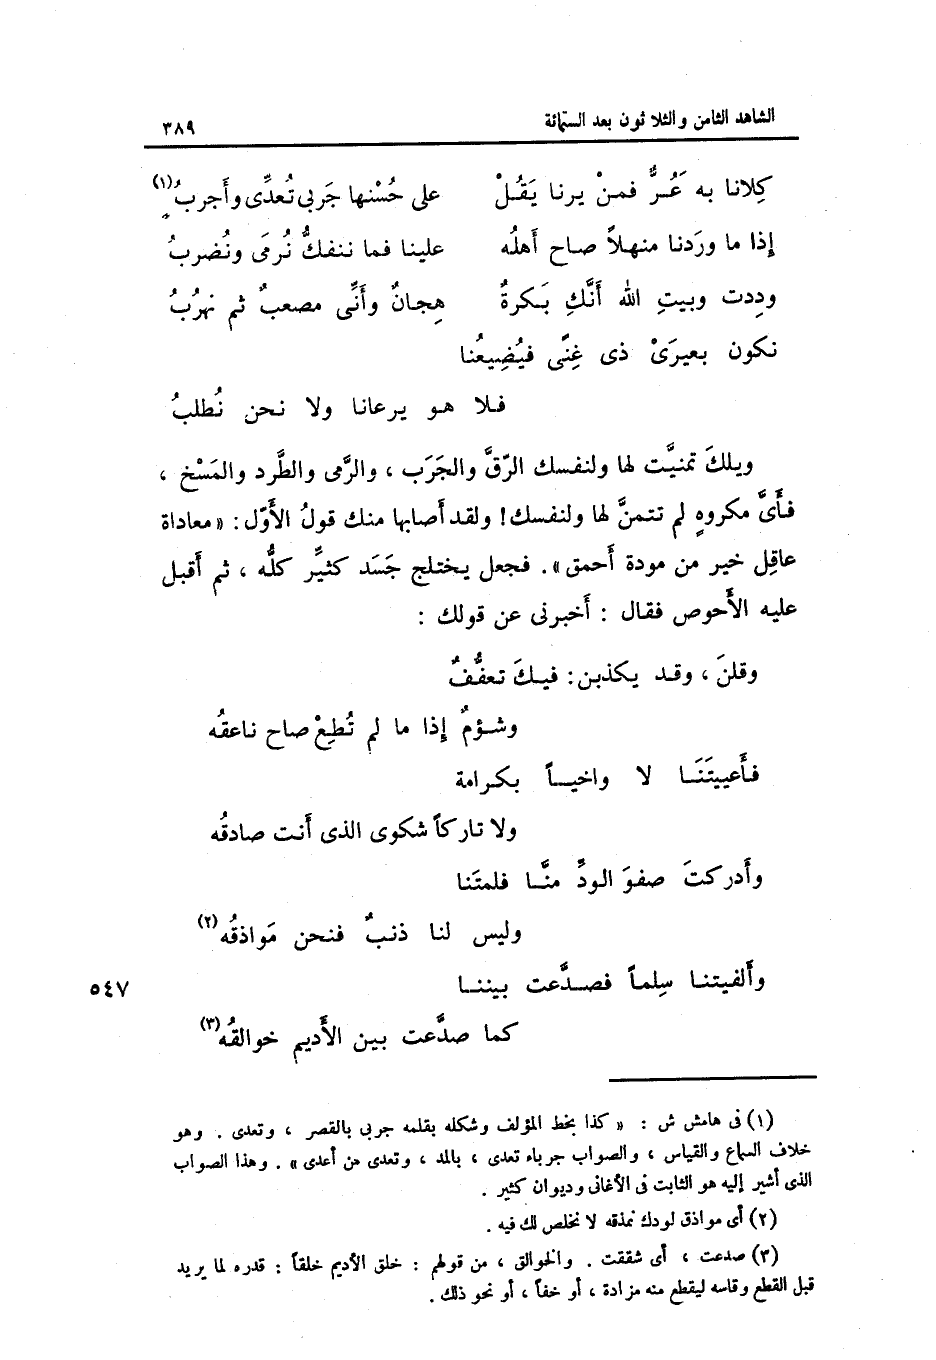 الشاهد الثامن والثلاثون بعد الستمائة ٣٨٩
كِلانا به عَُرٌّ فمنْ يرنا يَقُلْ على حُسْنها جَربى تُعدِّى وأَجربُ(١)
إذا ما ورَدنا منهلاً صاح أَهلُه علينا فما ننفكُّ نُرمَى ونُضربُ
ودِدت وبيتِ الله أَنَّكِ بَكرةٌ هِجانٌ وأَنِّى مصعبٌ ثم نهرُبُ
نكون بعيرَىْ ذى غِنًى فيُضِيعُنا
فلا هو يرعانا ولا نحن نُطلبُ
ويلكَ تمنيَّت لها ولنفسك الرّقَّ والجَرَب ، والرَّمى والطَّرد والمَسْخ ،
فأَىَّ مكروهٍ لم تتمنَّ لها ولنفسك! ولقد أصابها منك قولُ الأَوّل : « معاداة
عاقِل خير من مودة أَحمق » . فجعل يختلج جَسَد كثيِّر كلُّه ، ثم أَقبل
عليه الأَحوص فقال : أَخبرنى عن قولك :
وقلنَ ، وقد يكذبن : فيكَ تعفُّفٌ
وشؤمٌ إذا ما لم تُطِعْ صاح ناعقُه
فأَعييتَنَا لا واخياً بكرامة
ولا تاركاً شكوى الذى أَنت صادقُه
وأَدركتَ صفوَ الودِّ منَّا فلمتَنا
وليس لنا ذنبٌ فنحن مَواذقُه(٢)
وأَلفيتنا سِلماً فصدَّعت بيننا ٥٤٧
كما صدَّعت بين الأَديم خوالقُه(٣)
(١) فى هامش ش : « كذا بخط المؤلف وشكله بقلمه جربى بالقصر ، وتعدى . وهو
خلاف السماع والقياس ، والصواب جرباء تعدى ، بالمد ، وتعدى من أعدى » . وهذا الصواب
الذى أشير إليه هو الثابت فى الأغانى وديوان كثير .
(٢) أى مواذق لودك نمذقه لا نخلص لك فيه .
(٣) صدعت ، أى شققت . والخوالق ، من قولهم : خلق الأديم خلقاً : قدره لما يريد
قبل القطع وقاسه ليقطع منه مزادة ، أو خفاً ، أو نحو ذلك .